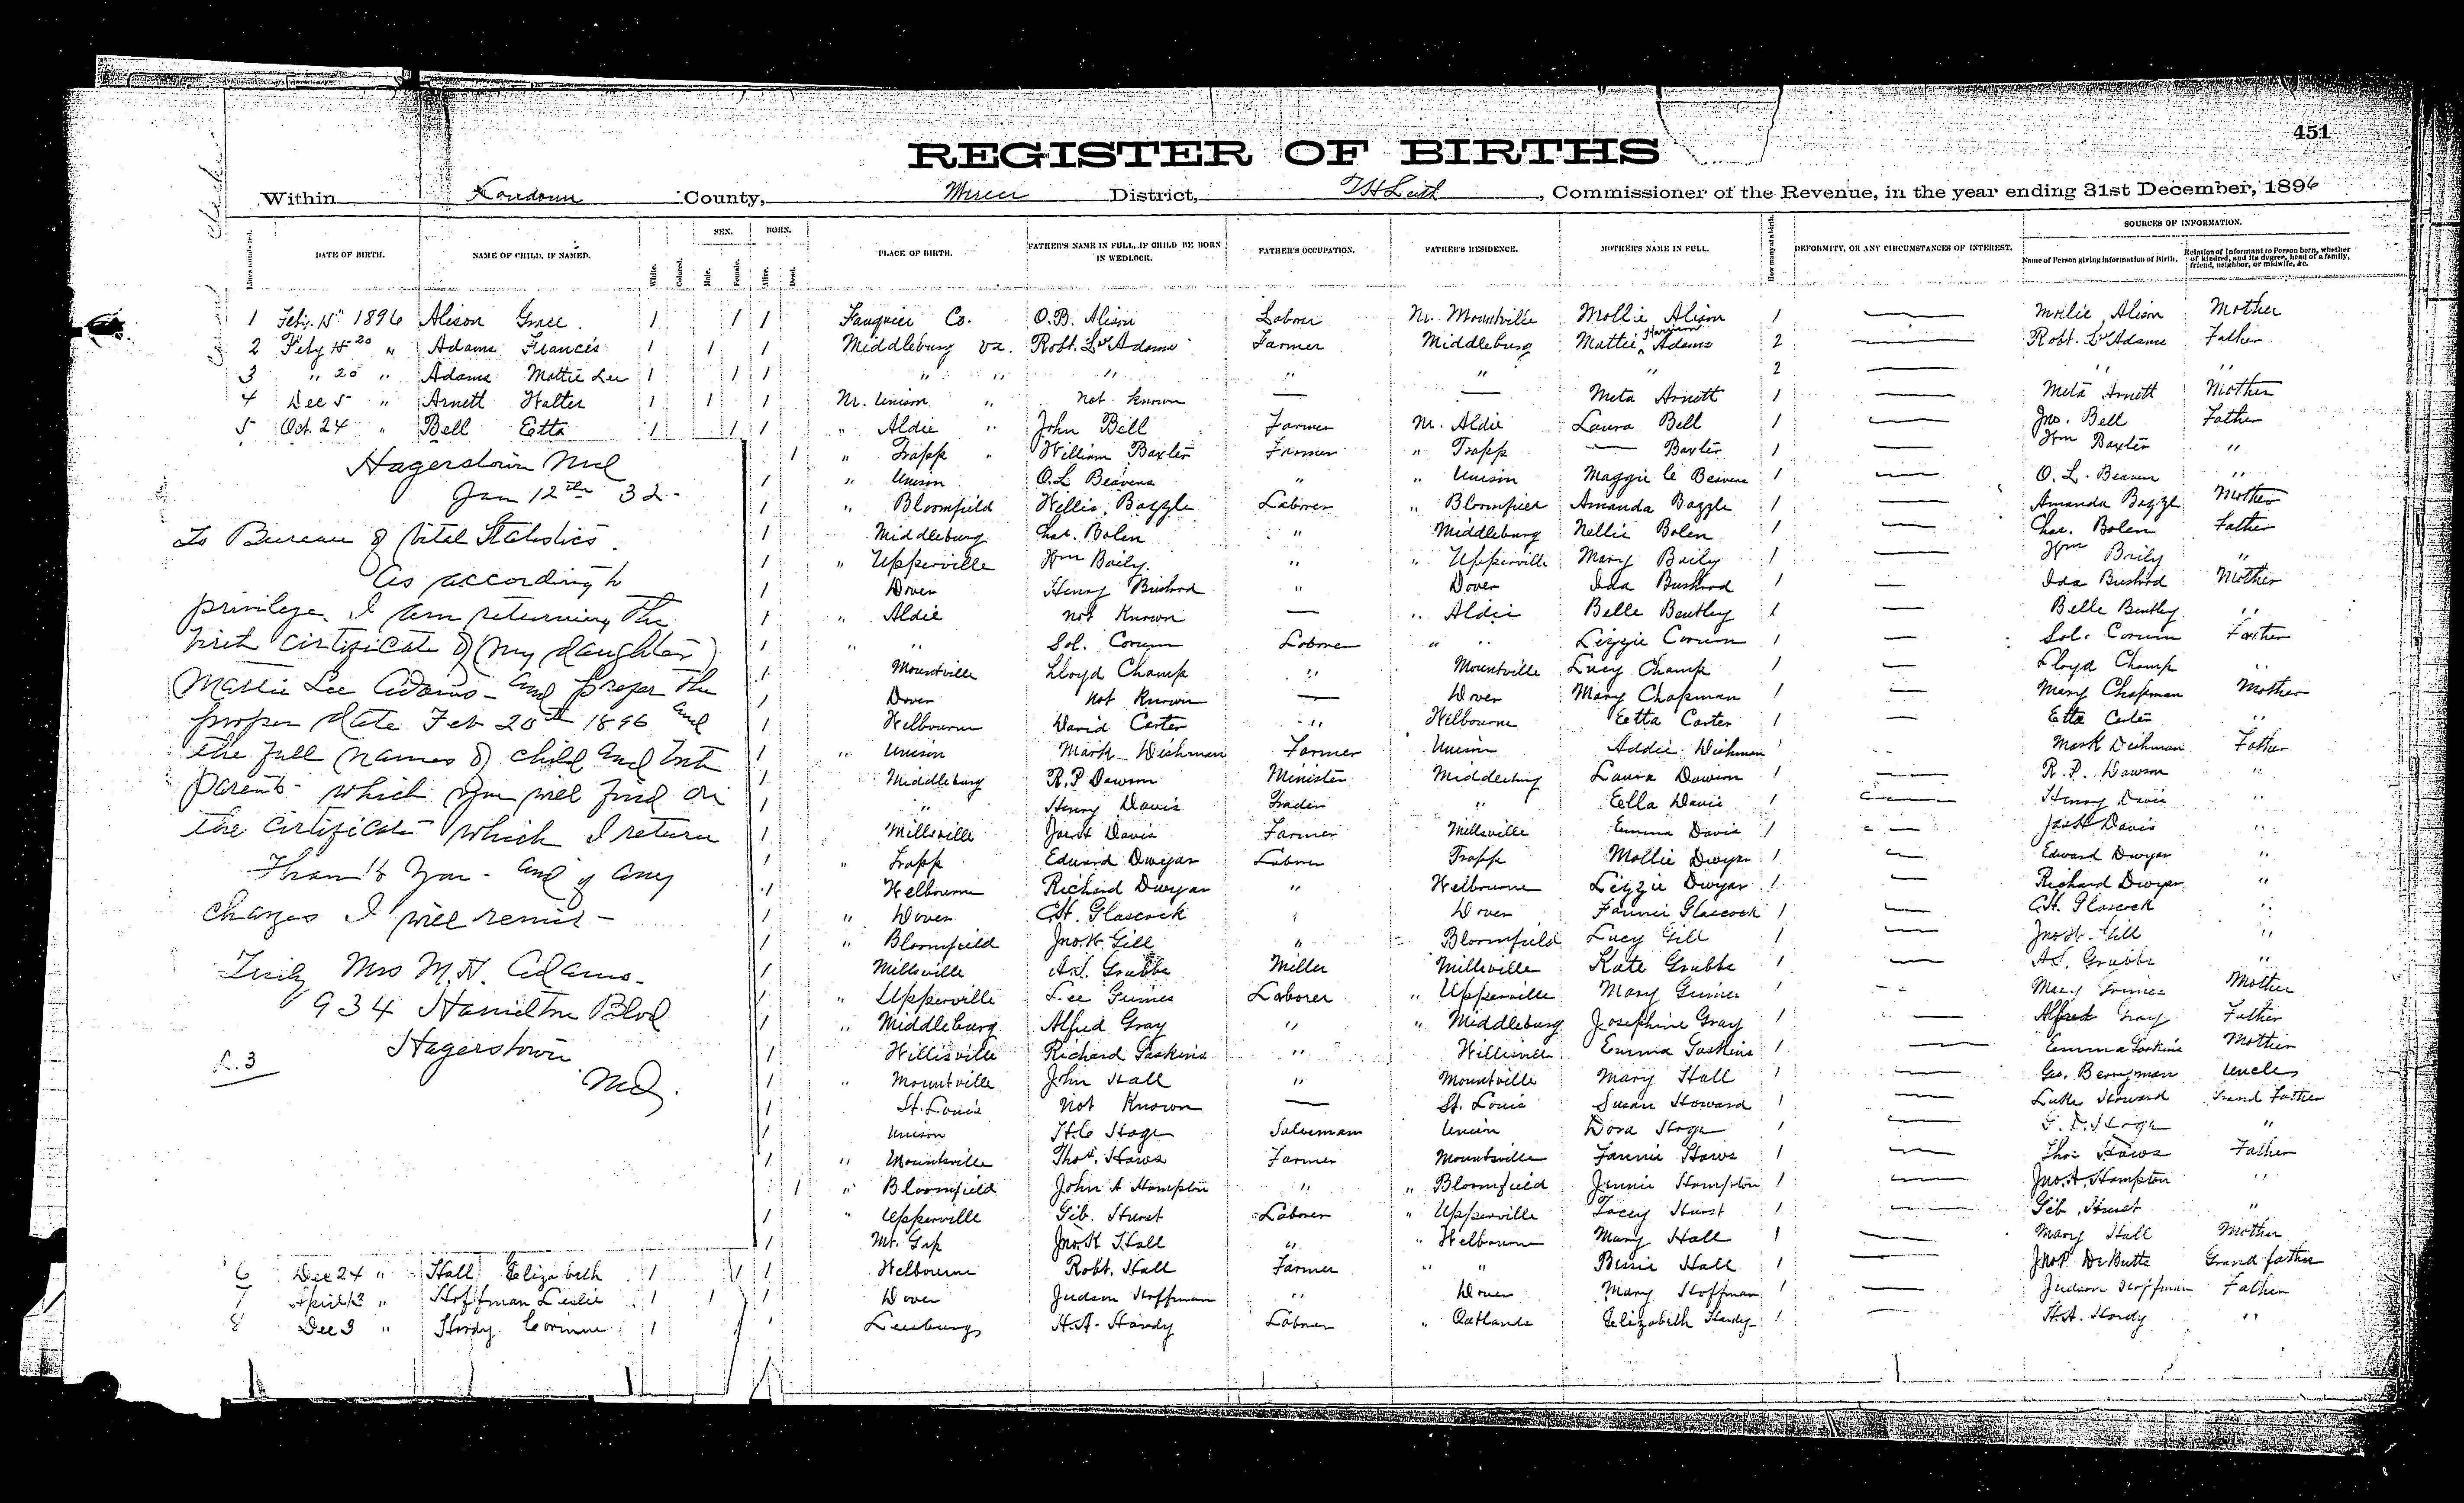 451
REGISTER OF BIRTHS
Within Loudoun County, Mercer District, T H Leith, Commissioner of the Revenue, in the year ending 31st December, 1896
SOURCES OF INFORMATION.
SEX. BORN.
Lines numbered. DATE OF BIRTH. NAME OF CHILD, IF NAMED. White. Colored. Male. Female. Alive. Dead. PLACE OF BIRTH. FATHER'S NAME IN FULL, IF CHILD BE BORN IN WEDLOCK. FATHER'S OCCUPATION. FATHER'S RESIDENCE. MOTHER'S NAME IN FULL. How many at a birth. DEFORMITY, OR ANY CIRCUMSTANCES OF INTEREST. Name of Person giving information of Birth. Relation of Informant to Person born, whether of kindred, and its degree, head of a family, friend, neighbor, or midwife, &c.
1 Feby. 15" 1896 Alison Grace 1 1 1 Fauquier Co. O.B. Alison Laborer Nr. Mountville Mollie Alison 1 — Mollie Alison Mother
2 Feby 20 " Adams Francis 1 1 1 Middleburg Va. Robt. Lee Adams Farmer Middleburg Mattie Harrison Adams 2 — Robt. Lee Adams Father
3 " 20 " Adams Mattie Lee 1 1 1 " " " " " " 2 — " "
4 Dec 5 " Arnett Walter 1 1 1 Nr. Unison " not known — — Meta Arnett 1 — Meta Arnett Mother
5 Oct. 24 " Bell Etta 1 1 1 " Aldie " John Bell Farmer Nr. Aldie Laura Bell 1 — Jno. Bell Father
1 " Trapp " William Baxter Farmer " Trapp — Baxter 1 — Wm Baxter "
1 " Unison O.L Beavens " " Unison Maggie C Beavens 1 — O. L. Beaven "
1 " Bloomfield Willis Bazzle Laborer " Bloomfield Amanda Bazzle 1 — Amanda Bazzle Mother
1 Middleburg Chas. Bolen " Middleburg Nellie Bolen 1 — Chas. Bolen Father
1 " Upperville Wm Baily " " Upperville Mary Baily 1 — Wm Baily "
1 Dover Henry Bushrod " Dover Ida Bushrod 1 — Ida Bushrod Mother
1 " Aldie not Known — " Aldie Belle Bentley 1 — Belle Bentley "
1 " " Sol. Corum Laborer " " Lizzie Corum 1 — Sol. Corum Father
1 Mountville Lloyd Champ " Mountville Lucy Champ 1 — Lloyd Champ "
1 Dover not Known — Dover Mary Chapman 1 — Mary Chapman Mother
1 Welbourne David Carter " Welbourne Etta Carter 1 — Etta Carter "
1 " Unison Mark Dishman Farmer Unison Addie Dishman 1 — Mark Dishman Father
1 Middleburg R.P Dawson Minister Middleburg Laura Dawson 1 — R. P. Dawson "
1 " Henry Davis Trader " Ella Davis 1 — Henry Davis "
1 Millsville Davis Farmer Millsville Emma Davis 1 — Davis "
1 " Trapp Edward Dwyar Laborer Trapp Mollie Dwyar 1 — Edward Dwyar "
1 Welbourne Richard Dwyar " Welbourne Lizzie Dwyar 1 — Richard Dwyar "
1 " Dover C.H. Glascock " Dover Fannie Glascock 1 — C.H. Glascock "
1 " Bloomfield Jno. W. Gill " Bloomfield Lucy Gill 1 — Jno W. Gill "
1 Millsville A.S. Grubbs Miller Millsville Kate Grubbs 1 — A.S. Grubbs "
1 " Upperville Lee Grimes Laborer " Upperville Mary Grimes 1 — Mary Grimes Mother
1 " Middleburg Alfred Gray " " Middleburg Josephine Gray 1 — Alfred Gray Father
1 Willisville Richard Gaskins " Willisville Emma Gaskins 1 — Emma Gaskins Mother
1 " Mountville John Hall " Mountville Mary Hall 1 — Geo. Berryman Uncle
1 St. Louis Not Known — St. Louis Susan Howard 1 — Luke Howard Grand Father
1 Unison H.C Hoge Salesman Unison Dora Hoge 1 — Hoge "
1 " Mountsville Thos. Haws Farmer Mountsville Fannie Haws 1 — Thos Haws Father
1 " Bloomfield John A Hampton " " Bloomfield Jennie Hampton 1 — Jno. A. Hampton "
1 " Upperville Gib. Hurst Laborer " Upperville Hurst 1 — Gib Hurst "
1 Mt. Gap Jno. K Hall " " Welbourne Mary Hall 1 — Mary Hall Mother
6 Dec 24 " Hall Elizabeth 1 1 1 Welbourne Robt. Hall Farmer " " Bessie Hall 1 — Jno P DeButts Grand father
7 April " Hoffman Leslie 1 1 1 Dover Judson Hoffman " Dover Mary Hoffman 1 — Judson Hoffman Father
8 Dec 3 " Hardy Corinne 1 1 1 Leesburg H.A. Hardy Laborer " Oatlands Elizabeth Hardy 1 — H.A. Hardy "
Hagerstown Md
Jan 12th 32-
To Bureau of Vital Statistics.
As according to
privilege. I am returning the
birth certificate of (my daughter)
Mattie Lee Adams - and prefer the
proper date Feb 20th 1896 and
the full names of child and both
parents - which you will find on
the certificate which I return
Thank you - and if any
charges I will remit -
Truly Mrs M.H. Adams.
934 Hamilton Blvd
Hagerstown
Md.
L. 3